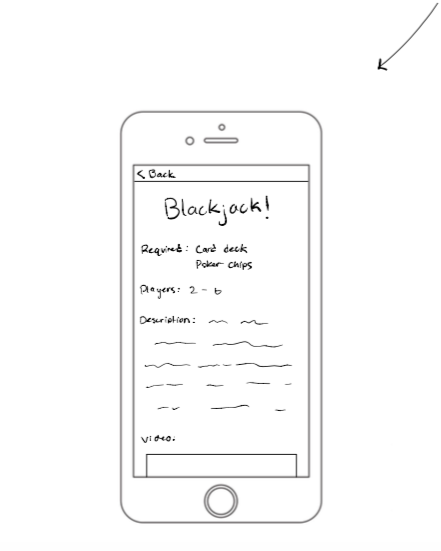 < Back
Blackjack!
Required: Card deck
Poker chips
Players: 2 - 6
Description:
Video: